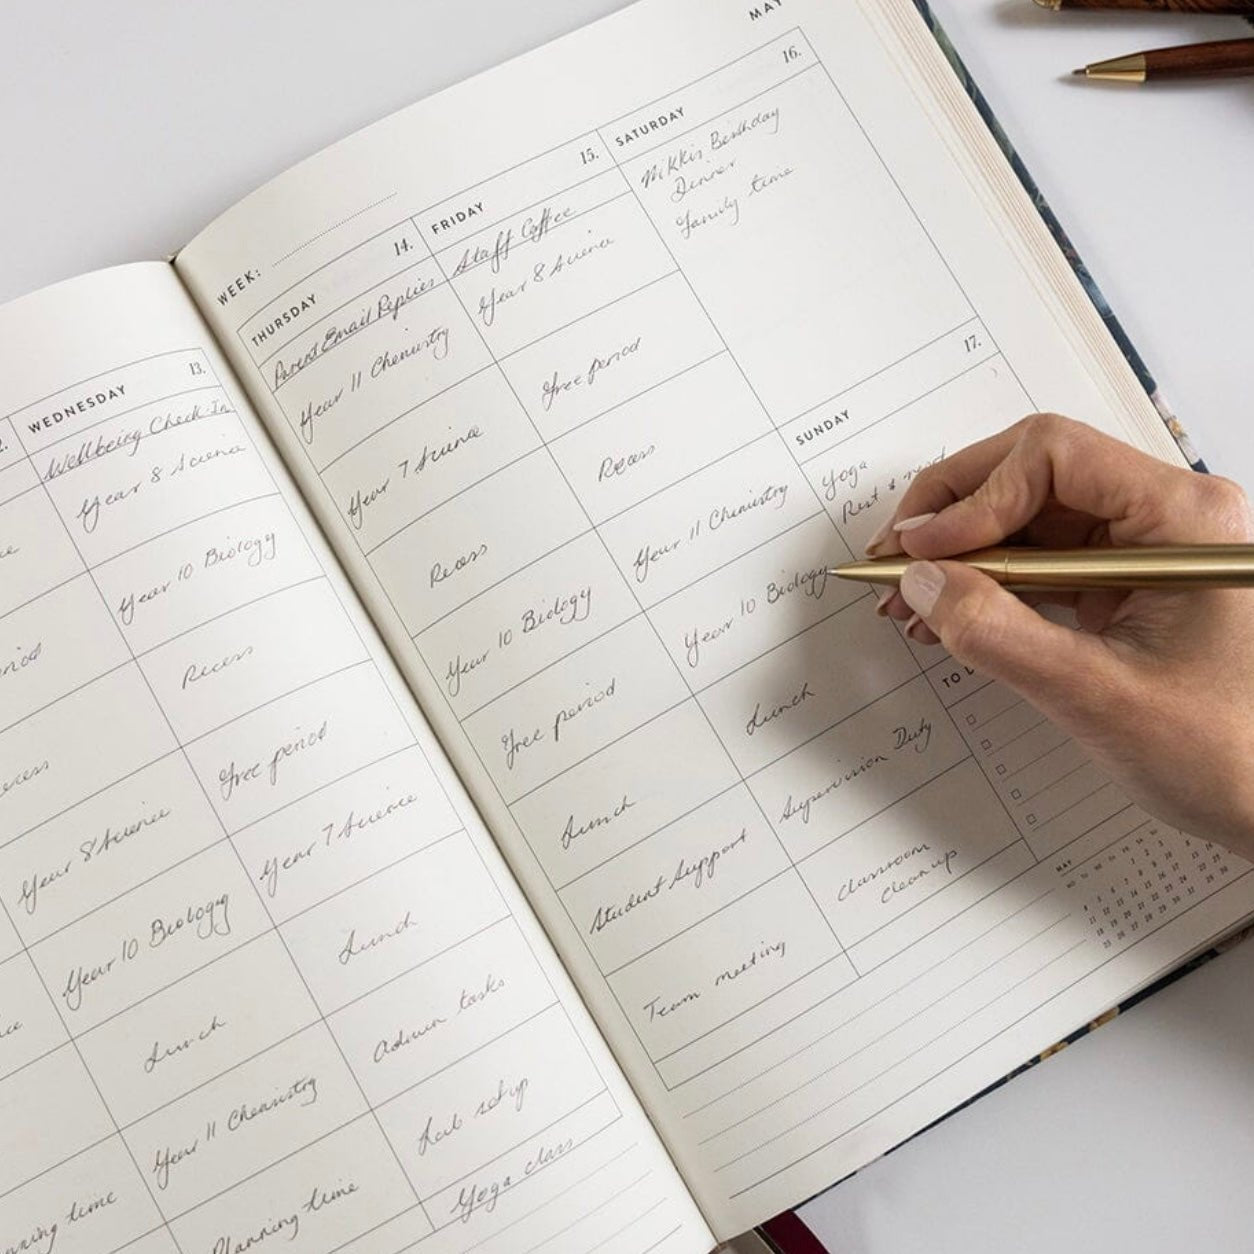 Year 8 Science
Year 10 Biology
Lunch
Year 11 Chemistry
Planning time
WEDNESDAY 13.
Wellbeing Check-In
Year 8 Science
Year 10 Biology
Recess
Free period
Year 7 Science
Lunch
Admin tasks
Lab set up
Yoga class
MAY
WEEK:
THURSDAY 14.
Parent Email Replies
Year 11 Chemistry
Year 7 Science
Recess
Year 10 Biology
Free period
Lunch
Student Support
Team meeting
FRIDAY 15.
Staff Coffee
Year 8 Science
Free period
Recess
Year 11 Chemistry
Year 10 Biology
Lunch
Supervision Duty
Classroom
clean up
SATURDAY 16.
Nikkis Birthday
Dinner
Family time
SUNDAY 17.
Yoga
Rest & reset
TO
MAY